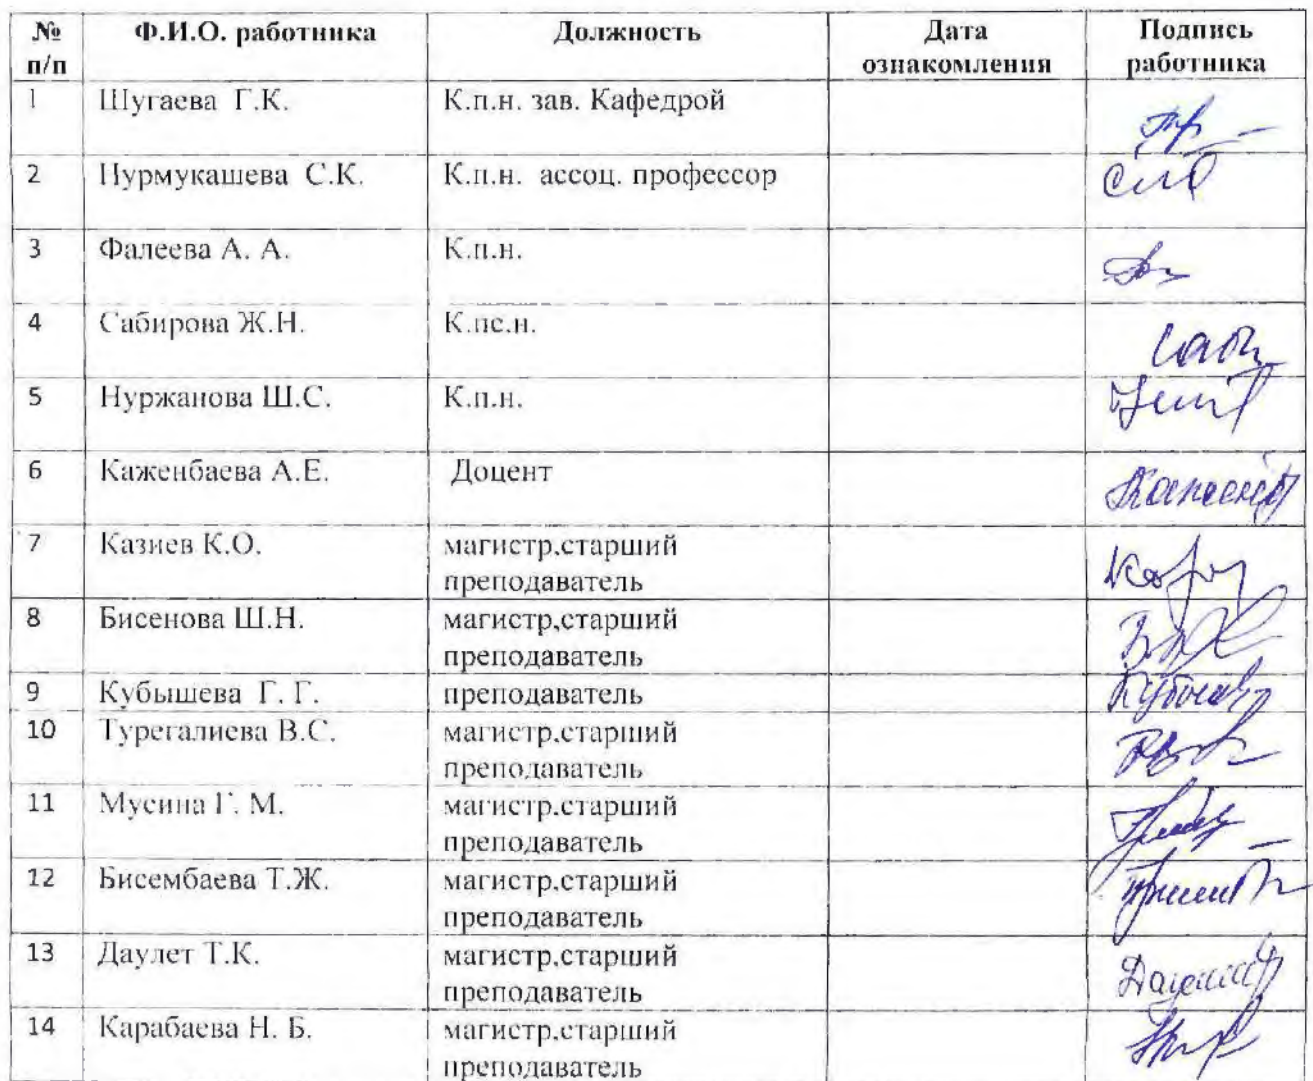 № п/п Ф.И.О. работника Должность Дата ознакомления Подпись работника
1 Шугаева Г.К. К.п.н. зав. Кафедрой
2 Нурмукашева С.К. К.п.н. ассоц. профессор
3 Фалеева А. А. К.п.н.
4 Сабирова Ж.Н. К.пс.н.
5 Нуржанова Ш.С. К.п.н.
6 Каженбаева А.Е. Доцент
7 Казиев К.О. магистр.старший
преподаватель
8 Бисенова Ш.Н. магистр,старший
преподаватель
9 Кубышева Г. Г. преподаватель
10 Турегалиева В.С. магистр.старший
преподаватель
11 Мусина Г. М. магистр.старший
преподаватель
12 Бисембаева Т.Ж. магистр.старший
преподаватель
13 Даулет Т.К. магистр,старший
преподаватель
14 Карабаева Н. Б. магистр,старший
преподаватель